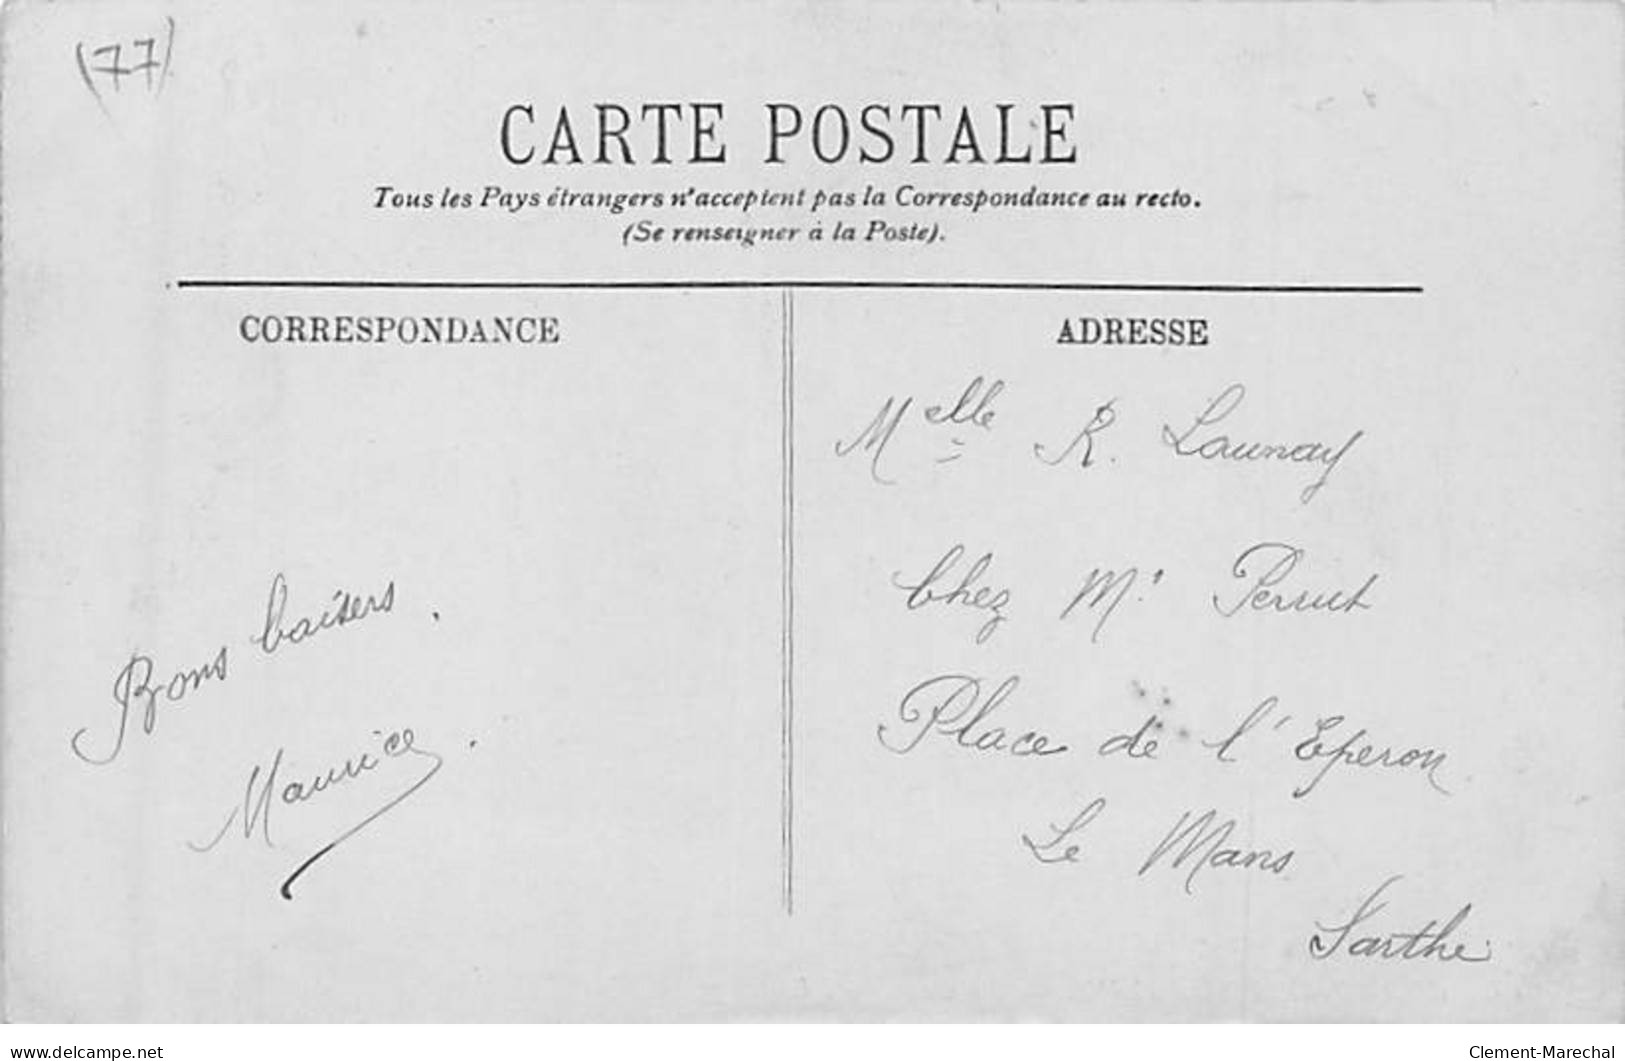 (77)
CARTE POSTALE
Tous les Pays étrangers n'acceptent pas la Correspondance au recto.
(Se renseigner à la Poste).
CORRESPONDANCE
Bons baisers.
Maurice.
ADRESSE
Melle R. Launay
Chez Mr Perrut
Place de l'Eperon
Le Mans
Sarthe
www.delcampe.net
Clement-Marechal